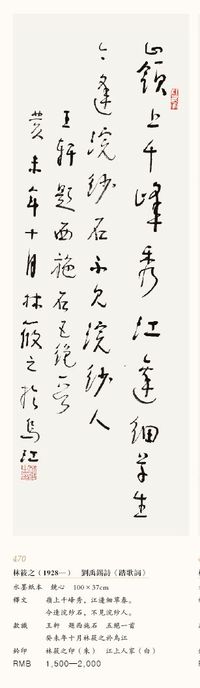 嶺上千峰秀江邊細草生
今逢浣紗石不見浣紗人
王軒題西施石五絕一首
癸未年十月林筱之於烏江
470
林筱之(1928—) 劉禹錫詩《踏歌詞》
水墨紙本 鏡心 100×37cm
釋文 嶺上千峰秀,江邊細草春。
今逢浣紗石,不見浣紗人。
款識 王軒 題西施石 五絕一首
癸未年十月林筱之於烏江
鈐印 林筱之印(朱) 江上人家(白)
RMB 1,500—2,000